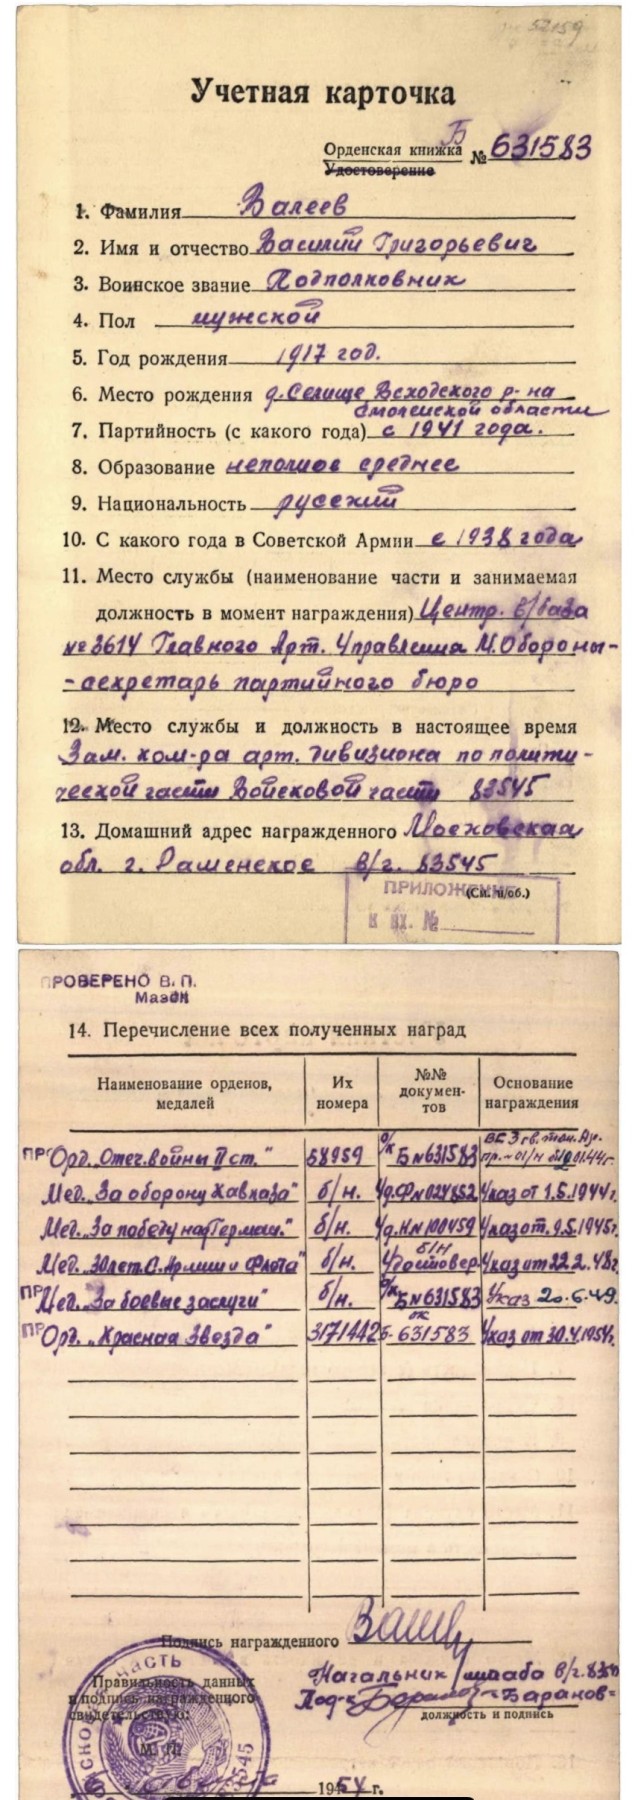 52159
Учетная карточка
Орденская книжка Б № 631583
Удостоверение
1. Фамилия Валеев
2. Имя и отчество Василий Григорьевич
3. Воинское звание Подполковник
4. Пол мужской
5. Год рождения 1917 год.
6. Место рождения д. Селище Всходского р-на
Смоленской области
7. Партийность (с какого года) с 1941 года.
8. Образование неполное среднее
9. Национальность русский
10. С какого года в Советской Армии с 1938 года
11. Место службы (наименование части и занимаемая
должность в момент награждения) Центр. в/база
№ 3614 Главного Арт. Управления М. Обороны-
- секретарь партийного бюро
12. Место службы и должность в настоящее время
Зам. ком-ра арт. дивизиона по полити-
ческой части Войсковой части 83545
13. Домашний адрес награжденного Московская
обл. г. Раменское в/г. 83545
(См. н/об.)
ПРИЛОЖЕНИЕ
к вх. №
ПРОВЕРЕНО В. П.
14. Перечисление всех полученных наград
Наименование орденов, медалей Их номера №№ документов Основание награждения
Орд. „Отеч. войны II ст." 58959 о/к Б № 631583 ВС 3 гв. тан. Ар.
Мед. „За оборону Кавказа" б/н. Уд. Ф № 024852 Указ от 1.5.1944г.
Мед. „За победу над Герман." б/н. Уд. Н № 100459 Указ от 9.5.1945г.
Мед. „30 лет С. Армии и Флота" б/н. б/н Удостовер. Указ от 22.2.48г.
Мед. „За боевые заслуги" б/н. о/к Б № 631583 Указ 20.6.49.
Орд. „Красная Звезда" 3171442 ок Б-631583 Указ от 30.4.1954г.
Подпись награжденного
Правильность данных
и подпись награжденного
свидетельствую:
Начальник штаба в/г.
Под-к Баранов
должность и подпись
М. П.
1954 г.